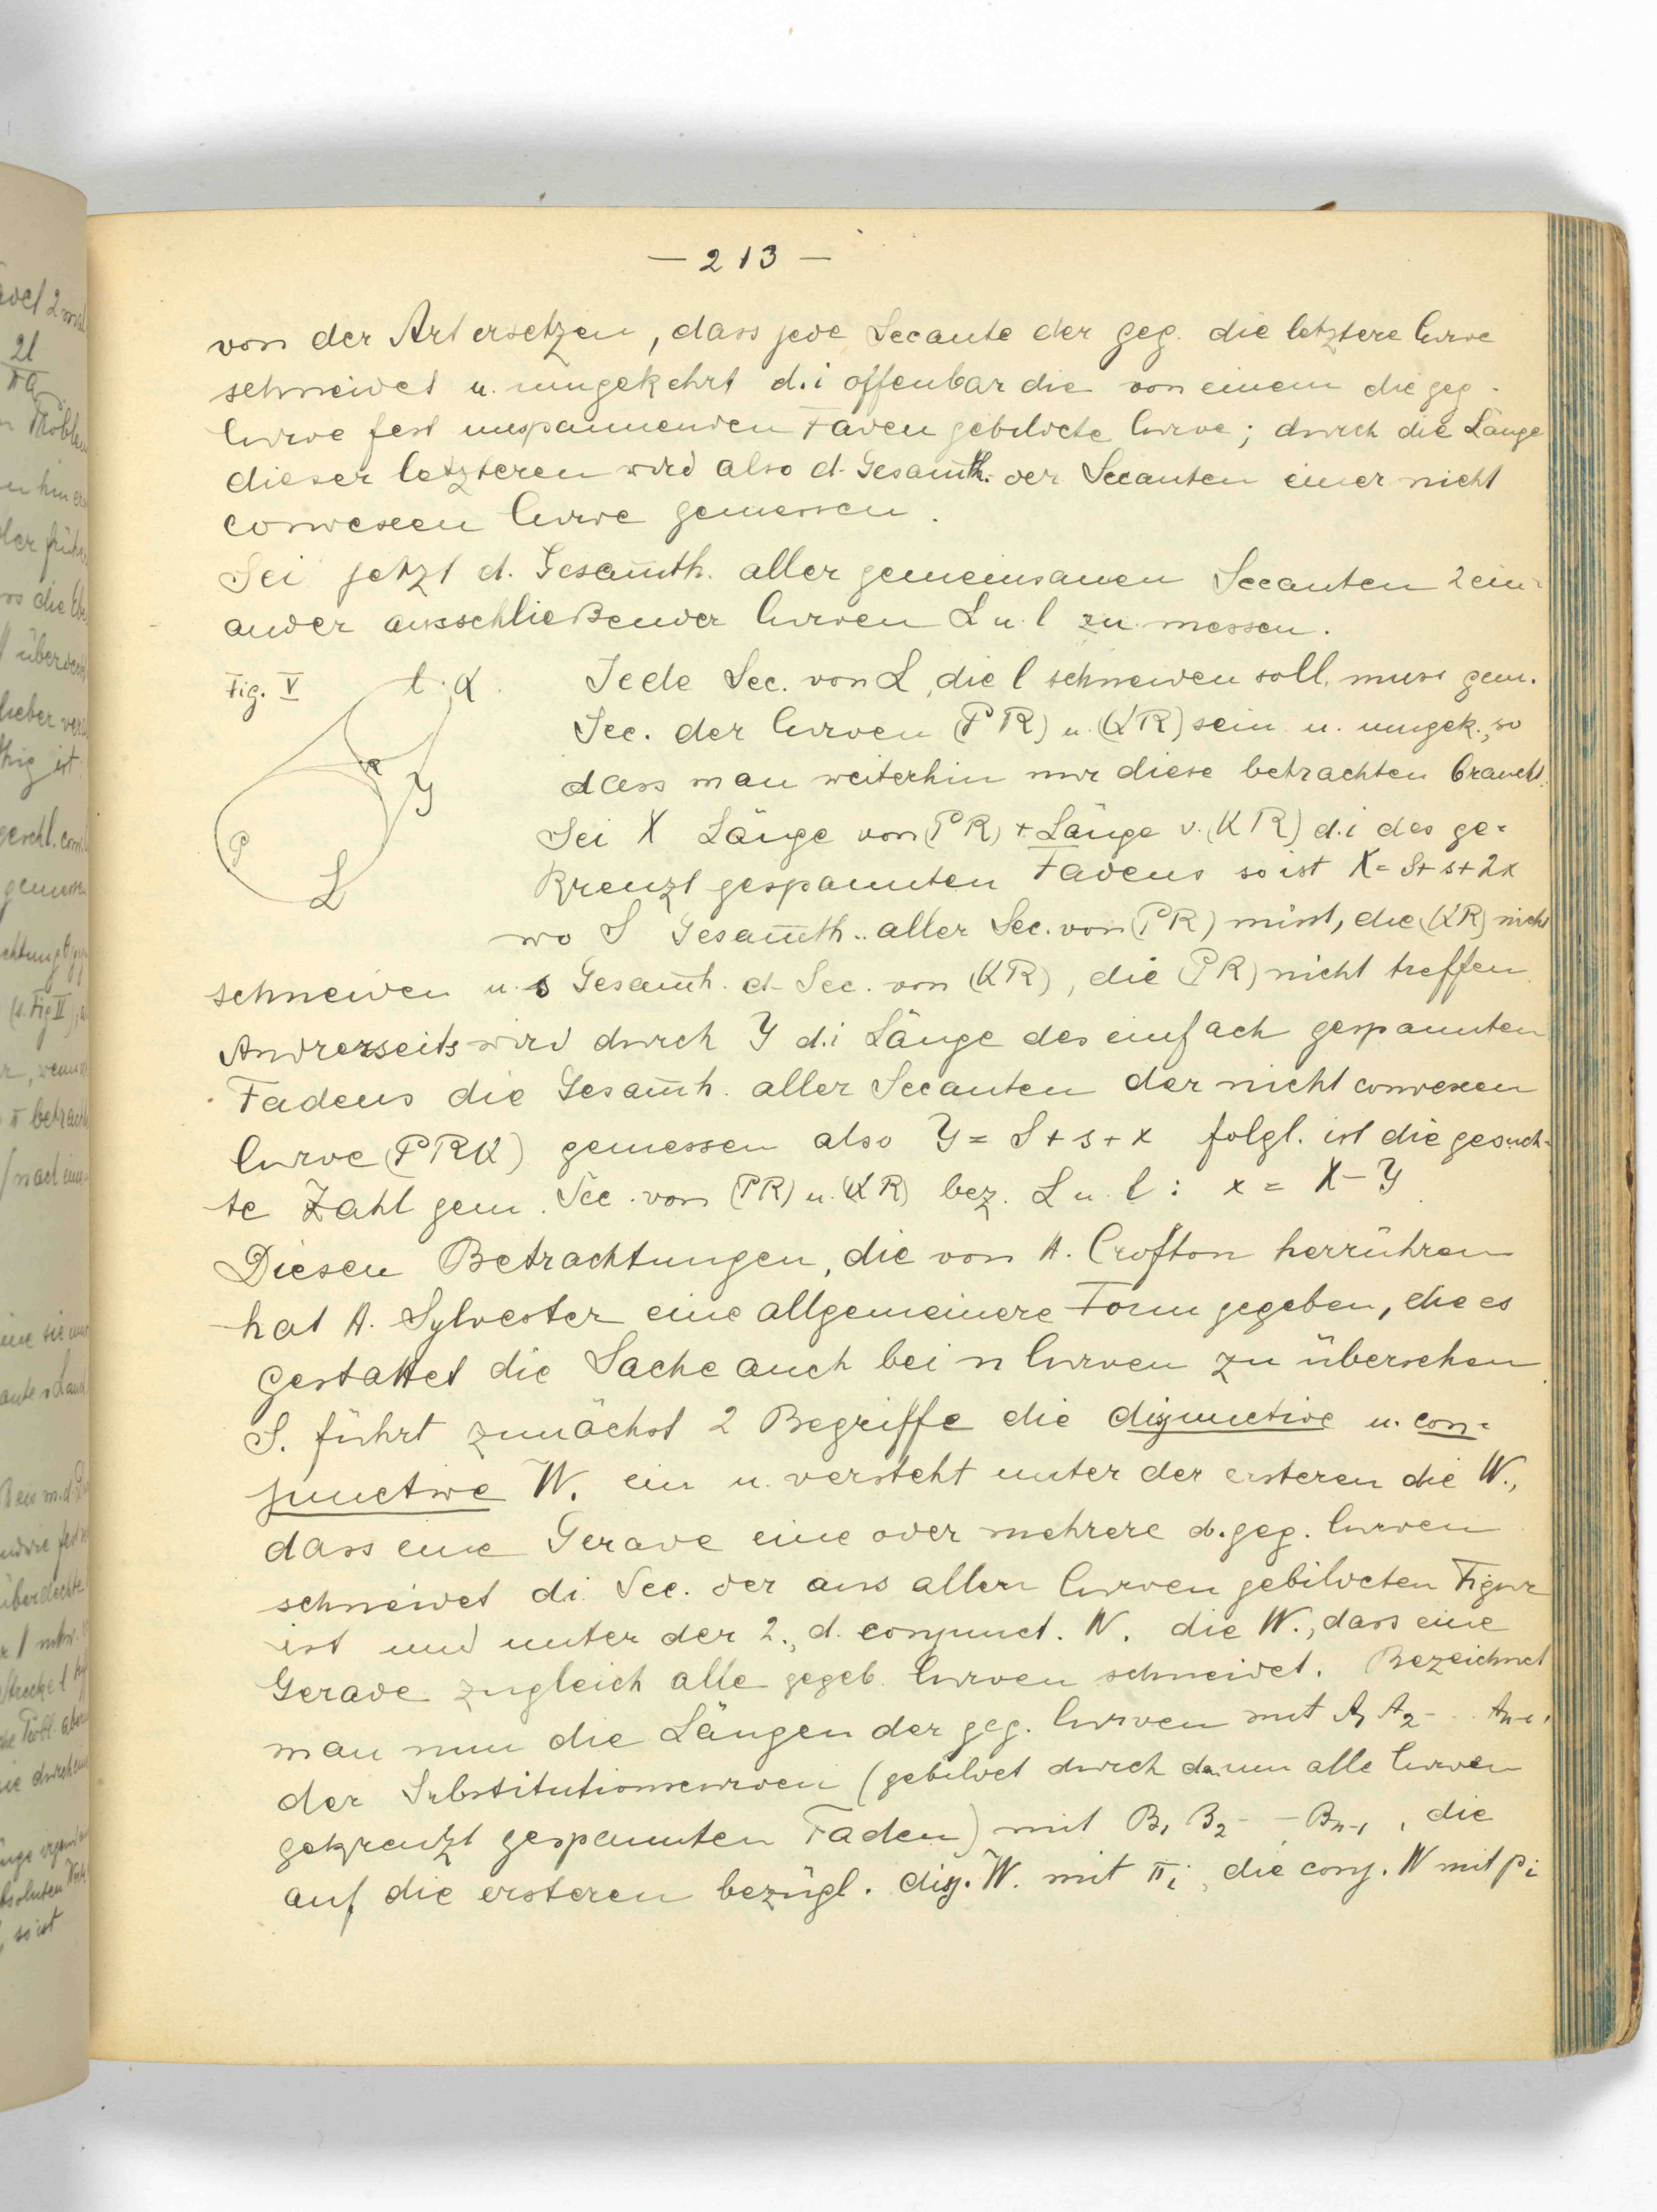 — 213 —
von der Art ersetzen, dass jede Secante der geg. die letztere Curve
schneidet u. umgekehrt d.i offenbar die von einem die geg.
Curve fest umspannenden Faden gebildete Curve; durch die Länge
dieser letzteren wird also d. Gesam̅th. der Secanten einer nicht
convexen Curve gemessen.
Sei jetzt d. Gesam̅th. aller gemeinsamen Secanten 2 ein-
ander ausschließender Curven L u. l zu messen.
Fig. V
l
K
R
Y
P
L
Jede Sec. von L, die l schneiden soll, muss gem.
Sec. der Curven (PR) u. (KR) sein u. umgek., so
dass man weiterhin nur diese betrachten braucht.
Sei X Länge von (PR) + Länge v. (KR) d.i des ge=
kreuzt gespannten Fadens so ist X = S + s + 2x
wo S Gesam̅th. aller Sec. von (PR) misst, die (KR) nicht
schneiden u. s Gesam̅h. d. Sec. von (KR), die (PR) nicht treffen.
Andrerseits wird durch Y d.i Länge des einfach gespannten
Fadens die Gesam̅h. aller Secanten der nicht convexen
Curve (PRK) gemessen also Y = S + s + x folgl. ist die gesuch-
te Zahl gem. Sec. von (PR) u. (KR) bez. L u. l : x = X - Y
Diesen Betrachtungen, die von H. Crofton herrühren
hat H. Sylvester eine allgemeinere Form gegeben, die es
gestattet die Sache auch bei n Curven zu übersehen.
S. führt zunächst 2 Begriffe die disjunctive u. con=
junctive W. ein u. versteht unter der ersteren die W.,
dass eine Gerade eine oder mehrere d. geg. Curven
schneidet di. Sec. der aus allen Curven gebildeten Figur
ist und unter der 2., d. conjunct. W. die W., dass eine
Gerade zugleich alle gegeb. Curven schneidet. Bezeichnet
man nun die Längen der geg. Curven mit A₁ A₂ - . .
der Substitutionscurven (gebildet durch d. um alle Curven
gekreuzt gespannten Faden) mit B₁ B₂ - - Bₙ₋₁, die
auf die ersteren bezügl. disj. W. mit πᵢ, die conj. W mit pᵢ